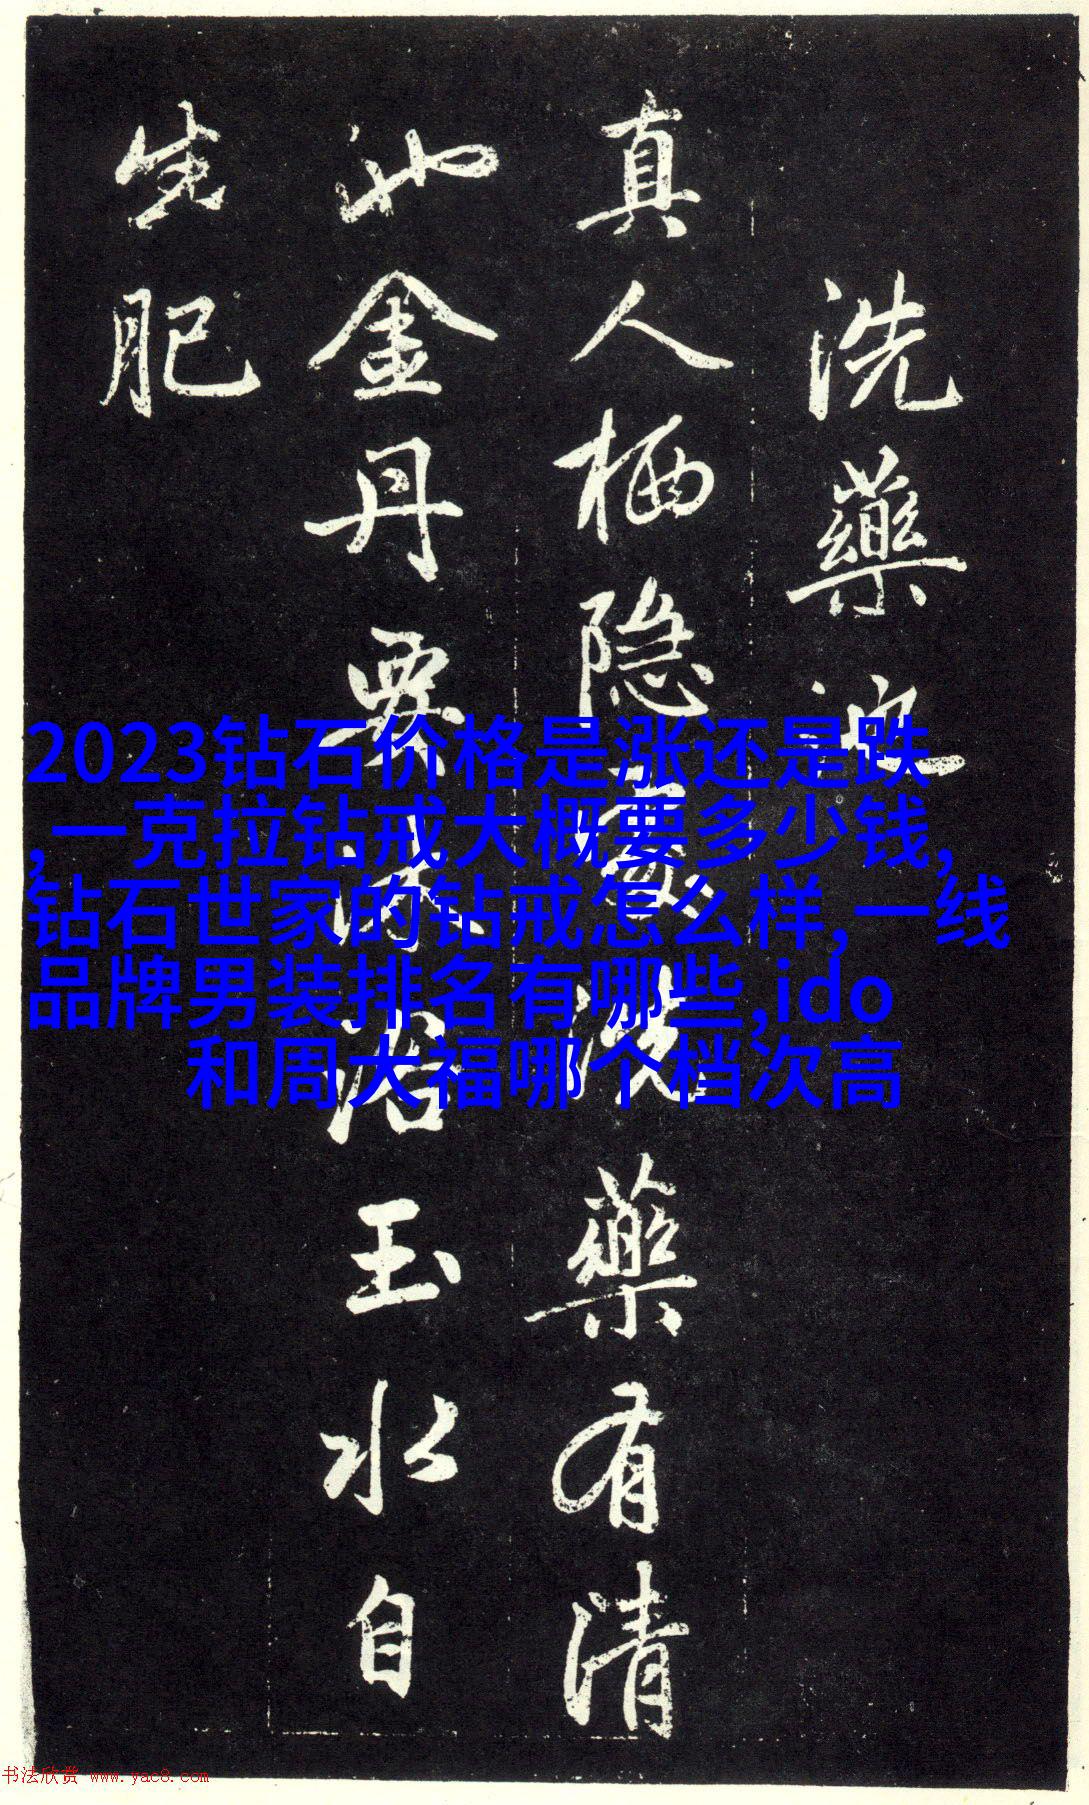 洗藥池
真人栖隐處洗藥有清
池金丹要沐浴玉水自
生肥
2023钻石价格是涨还是跌
,一克拉钻戒大概要多少钱,
钻石世家的钻戒怎么样,一线
品牌男装排名有哪些,ido
和周大福哪个档次高
书法欣赏 www.yac8.com